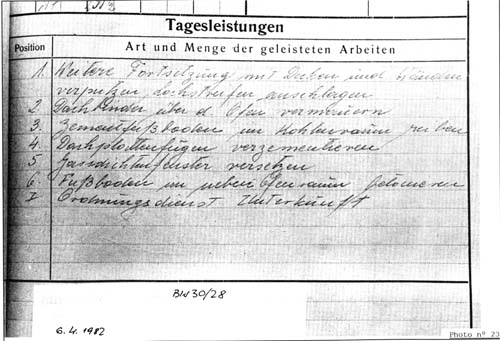 Tagesleistungen
Position Art und Menge der geleisteten Arbeiten
1. Weitere Fortsetzung mit Decken und Wänden
verputzen anschlagen
2. über d. Ofen vermauern
3. Zementfußboden im reiben
4. Dachplattenfugen verzementieren
5 Gasdichtenfenster versetzen
6. Fußboden im betonieren
I Ordnungsdienst Unterkunft
BW 30/28
6.4. 1982
Photo n° 23